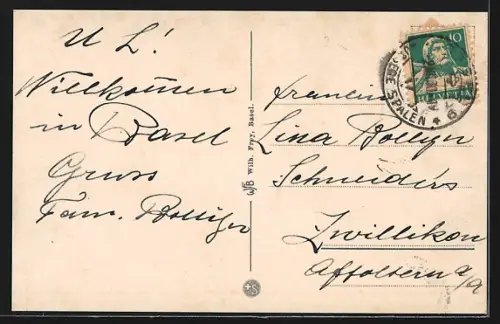 U L!
Willkomen
in Basel
Gruss
Fam. Bolliger
Wilh. Frey, Basel.
WFB
10
HELVETIA
SPALEN
Fräulein
Lina Bolliger
Schneiders
Zwillikon
Affoltern a/a